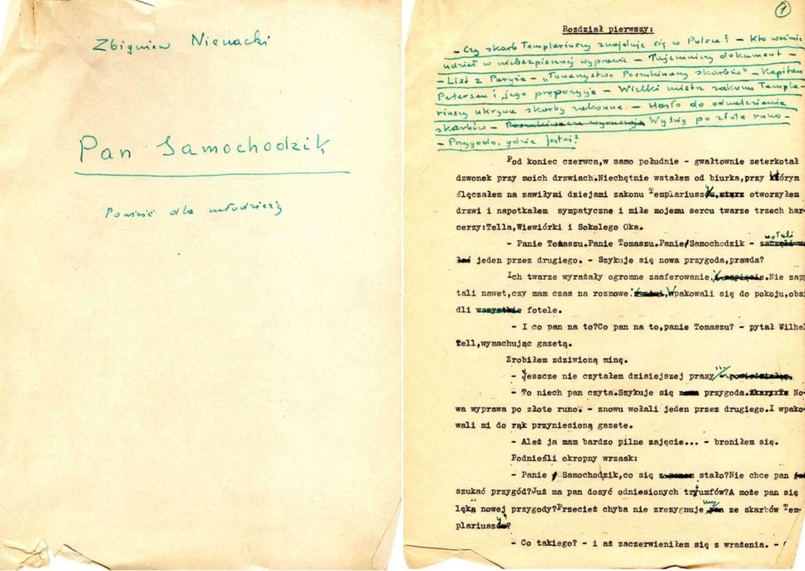 Zbigniew Nienacki
Pan Samochodzik
Powieść dla młodzieży
1
Rozdział pierwszy:
– Czy skarb Templariuszy znajduje się w Polsce? – Kto weźmie
udział w niebezpiecznej wyprawie – Tajemniczy dokument –
– List z Paryża – „Towarzystwo Poszukiwaczy skarbów" – Kapitan
Petersen i jego propozycja – Wielki mistrz zakonu Templa-
riuszy ukrywa skarby zakonne. – Hasło do odnalezienia
skarbów – Wyścig po złote runo –
– Przygodo, gdzie jesteś?
Pod koniec czerwca,w samo południe - gwałtownie zeterkotał
dzwonek przy moich drzwiach.Niechętnie wstałem od biurka,przy którym
ślęczałem na zawiłymi dziejami zakonu Templariuszy, otworzyłem
drzwi i napotkałem sympatyczne i miłe mojemu sercu twarze trzech har
cerzy:Tella,Wiewiórki i Sokolego Oka.
- Panie Tomaszu.Panie Tomaszu.Panie Samochodzik - wołali
jeden przez drugiego. - Szykuje się nowa przygoda,prawda?
Ich twarze wyrażały ogromne zaaferowanie. Nie zapy
tali nawet,czy mam czas na rozmowe. Wpakowali się do pokoju,obsi
dli fotele.
- I co pan na to?Co pan na to,panie Tomaszu? - pytał Wilhel
Tell,wymachując gazetą.
Zrobiłem zdziwioną minę.
- Jeszcze nie czytałem dzisiejszej prasy...
- To niech pan czyta.Szykuje się przygoda. No-
wa wyprawa po złote runo - znowu wołali jeden przez drugiego.I wpako-
wali mi do rąk przyniesioną gazete.
- Ależ ja mam bardzo pilne zajęcie... - broniłem się.
Podnieśli okropny wrzask:
- Panie Samochodzik,co się stało?Nie chce pan
szukać przygód?Już ma pan dosyć odniesionych tryumfów?A może pan się
lęka nowej przygody?Przecież chyba nie zrezygnujemy ze skarbów Tem-
plariuszy?
- Co takiego? - i aż zaczerwieniłem się z wrażenia. -